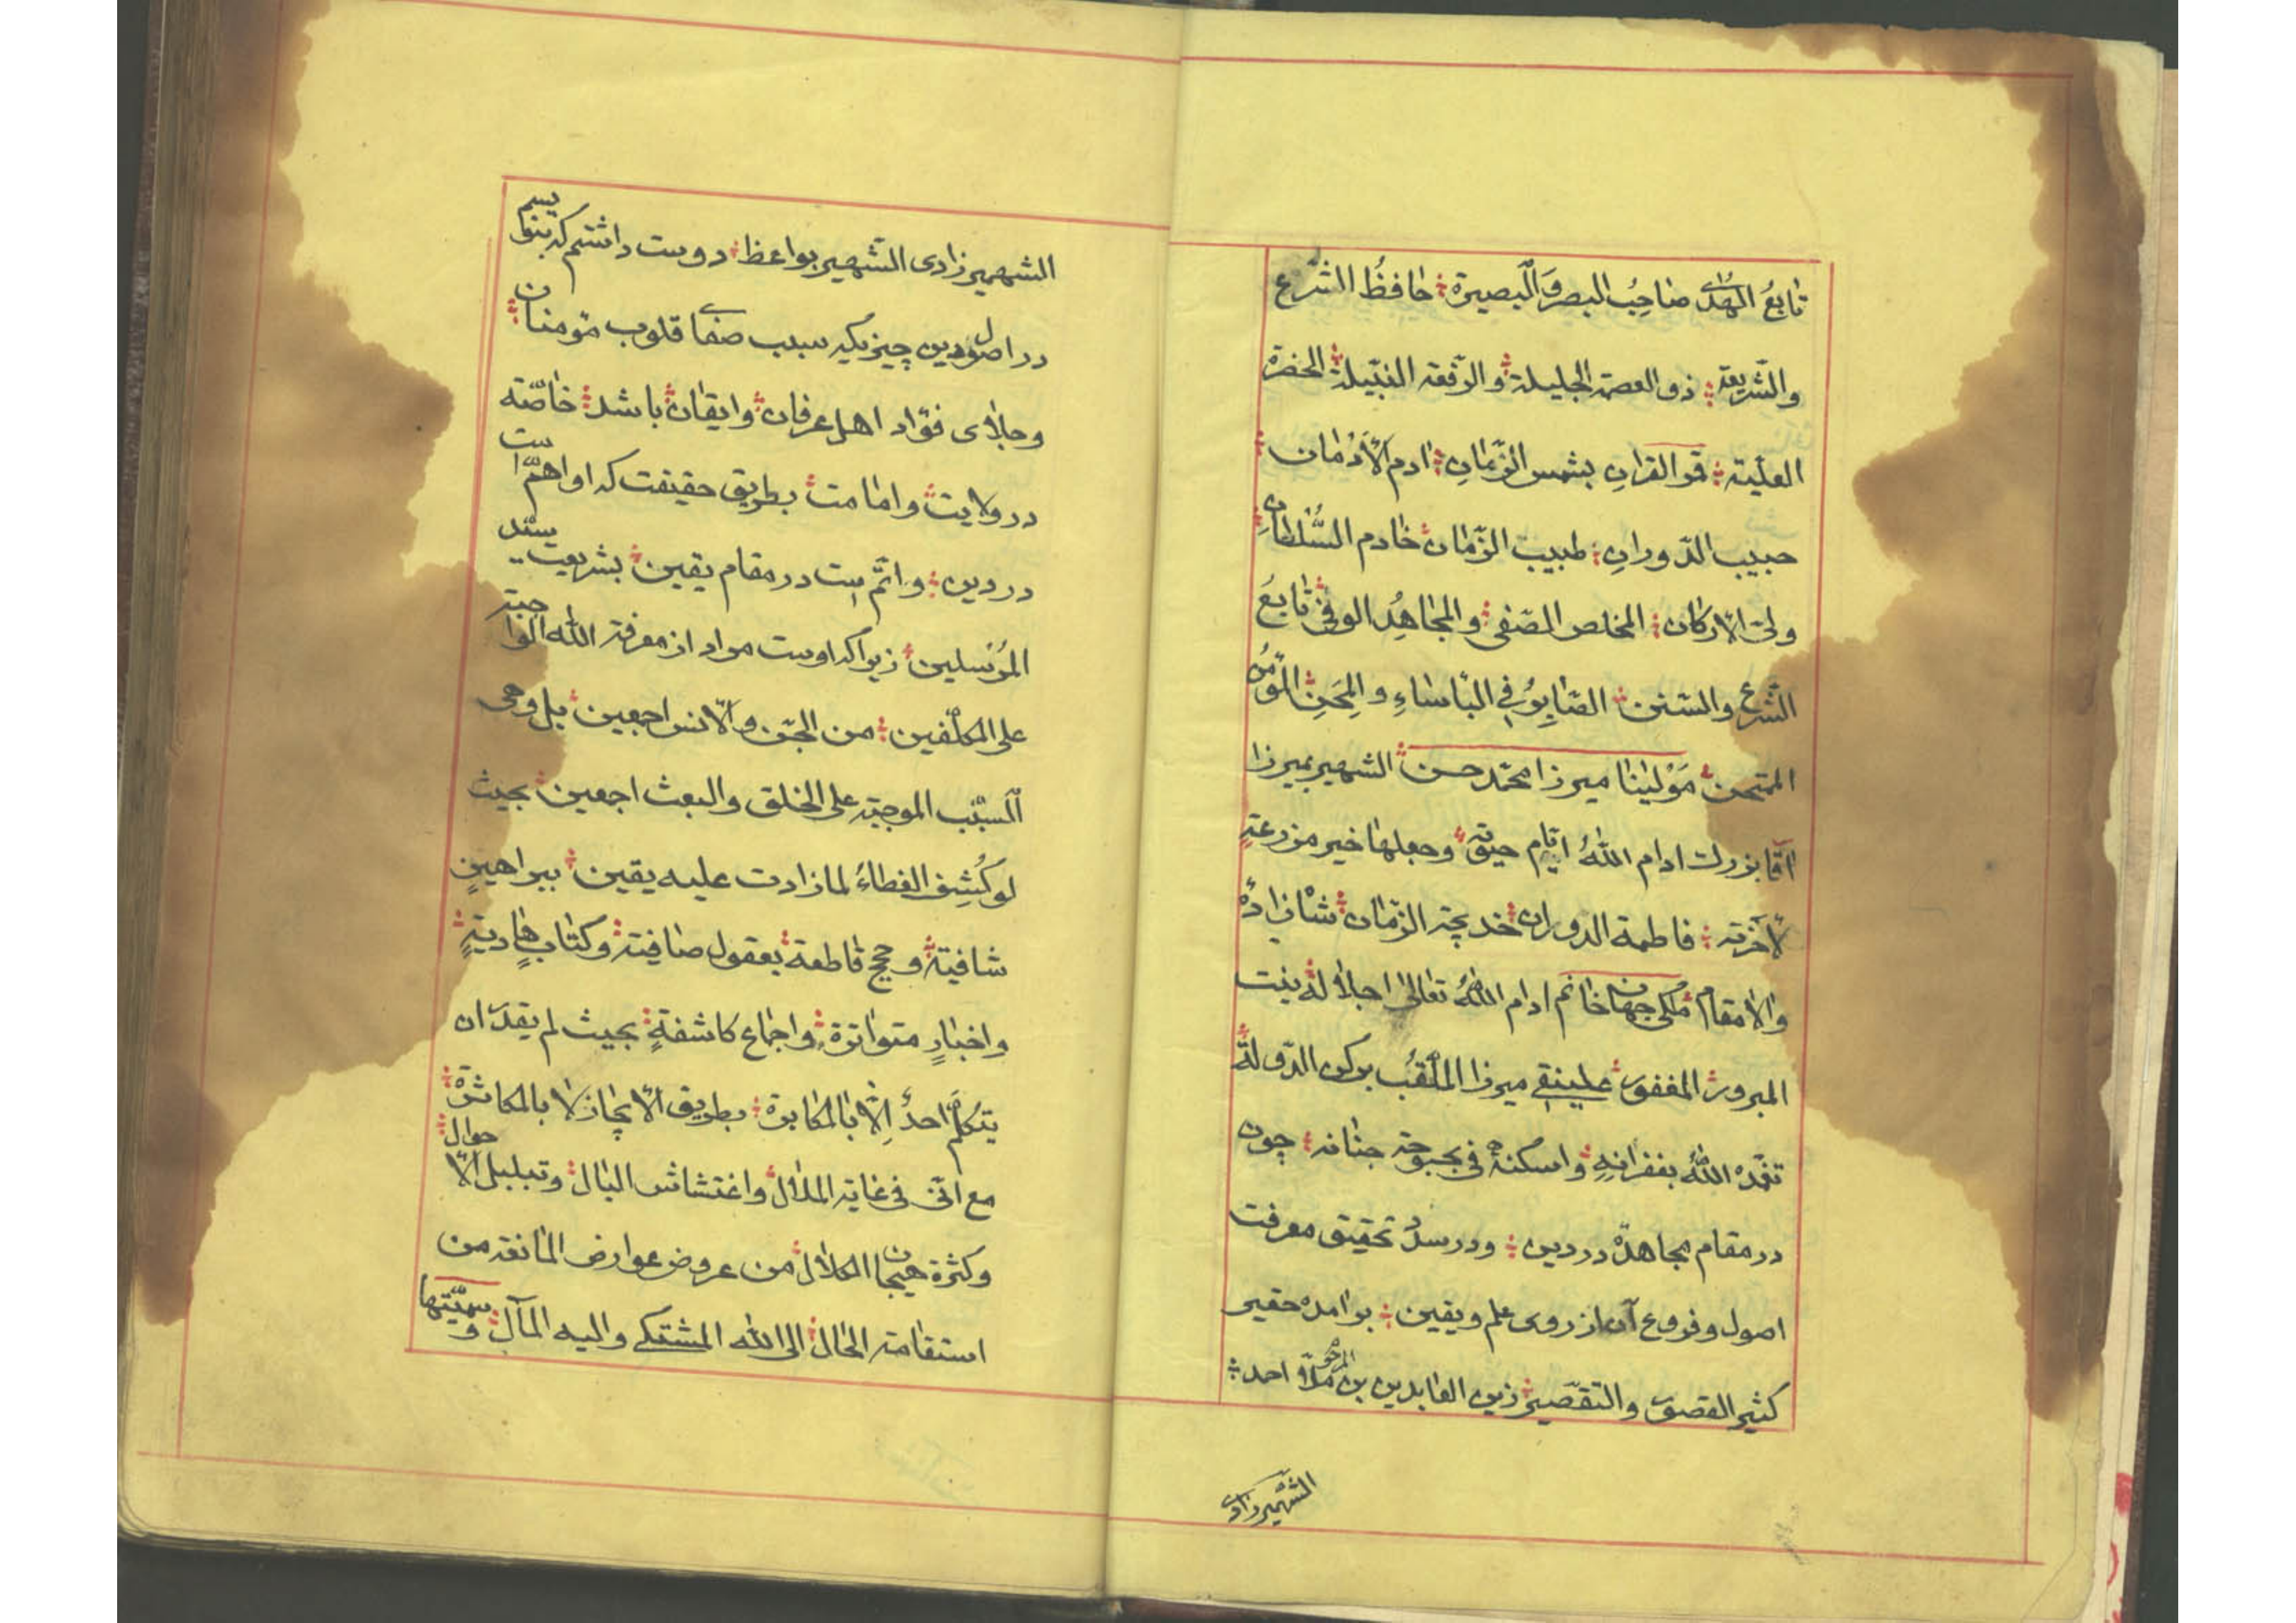 تابعُ الهُدیٰ صاحِبُ البصر وَالبصیرة؛ حافظُ الشّرع
والشّریعة؛ ذو العصمة الجلیلة؛ والرّفعة النبیلة؛ الحضرة
العلیّة؛ قمر القرانِ بشمس الزّمانِ؛ ادم الأدْمان؛
حبیب الدّورانِ؛ طبیب الزّمان؛ خادم السُّلطانِ؛
ولیّ الارکان؛ المخلص الصّفی؛ والمجاهِدُ الوفی؛ تابعُ
الشّرع والسّنن؛ الصّابِرُ فی البأساءِ والمِحَنِ؛ المؤمنُ
الممتحن؛ مَوْلینا میرزا محمّد حسن؛ الشهیر بمیرزا
آقا بزرک ادام اللهُ ایّام حیٰوته؛ وجعلها خیر مزرعةٍ
لآخرته؛ فاطمة الدوران؛ خدیجة الزّمان؛ شاهزادهٔ
والامقام؛ ملکجهان خانم ادام اللهُ تعالیٰ اجلاله؛ بنت
المبرور؛ المغفور؛ علینقی میرزا الملقّب برکن الدّوله؛
تغمّده اللهُ بغفرانِهِ؛ واسکنهُ فی بحبوحة جنانه؛ چون
در مقام مجاهدهٔ در دین؛ ودرسدد تحقیق معرفت
اصول وفروع آن از روی علم ویقین؛ برامده حقیر
کثیر القصور والتّقصیر؛ زین العابدین بن المرحوم ملّا احمد؛
الشّهمیرزادی
الشهمیرزادی الشّهیر بواعظ؛ دوست داشتم که بنویسم
در اصول دین چیزیکه سبب صفای قلوب مؤمنان؛
وجلای فؤاد اهل عرفان؛ وایقان؛ باشد؛ خاصّة
در ولایت؛ وامامت؛ بطریق حقیقت که او اهمّ است
در دین؛ واتمّ است در مقام یقین؛ بشریعت سیّد
المُرْسلین؛ زیراکه اوست مراد از معرفة الله الواجبة
علی المکلّفین؛ من الجنّ والانس اجمعین؛ بل وهی
السّبب الموجبة علی الخلق والبعث اجمعین؛ بحیث
لو کُشِفَ الغطاءُ لما زادت علیه یقین؛ ببراهینٍ
شافیة؛ وحجج قاطعة؛ بعقول صافیة؛ وکتابٍ هادیةٍ؛
واخبارٍ متواترة؛ واجماع کاشفةٍ؛ بحیث لم یقدر ان
یتکلّم احدٌ اِلّا بالمکابرة؛ بطریق الایجاز لا بالمکاثرة؛
مع انّی فی غایة الملال؛ واغتشاش البال؛ وتبلبل الاحوال؛
وکثرة هیجان الکلال؛ من عروض عوارض المانعة من
استقامة الحال؛ الی الله المشتکی والیه المآل؛ وسمّیتها